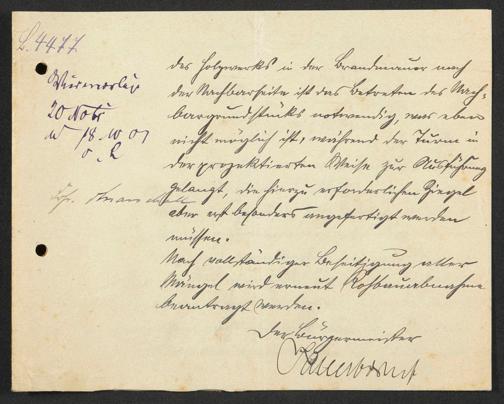 L. 4477
des Holzwerks in der Brandmauer nach
der Nachbarseite ist das Betreten des Nach-
bargrundstücks notwendig, was eben
nicht möglich ist, während der Turm in
der projektierten Weise zur Ausführung
gelangt, die hierzu erforderlichen Ziegel
aber erst besonders angefertigt werden
müssen.
Nach vollständiger Beseitigung aller
Mängel wird erneut Rohbauabnahme
beantragt werden.
Der Bürgermeister